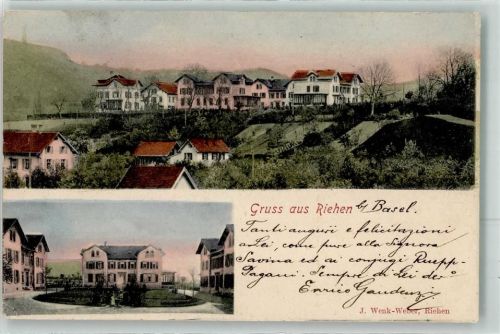 Gruss aus Riehen b/ Basel.
Tanti auguri e felicitazioni
a Lei, come pure alla Signora
Savina ed ai conjugi Ruepp-
Pagani. Sempre di Lei dev°
Enrico Gaudenzi
J. Wenk-Weber, Riehen